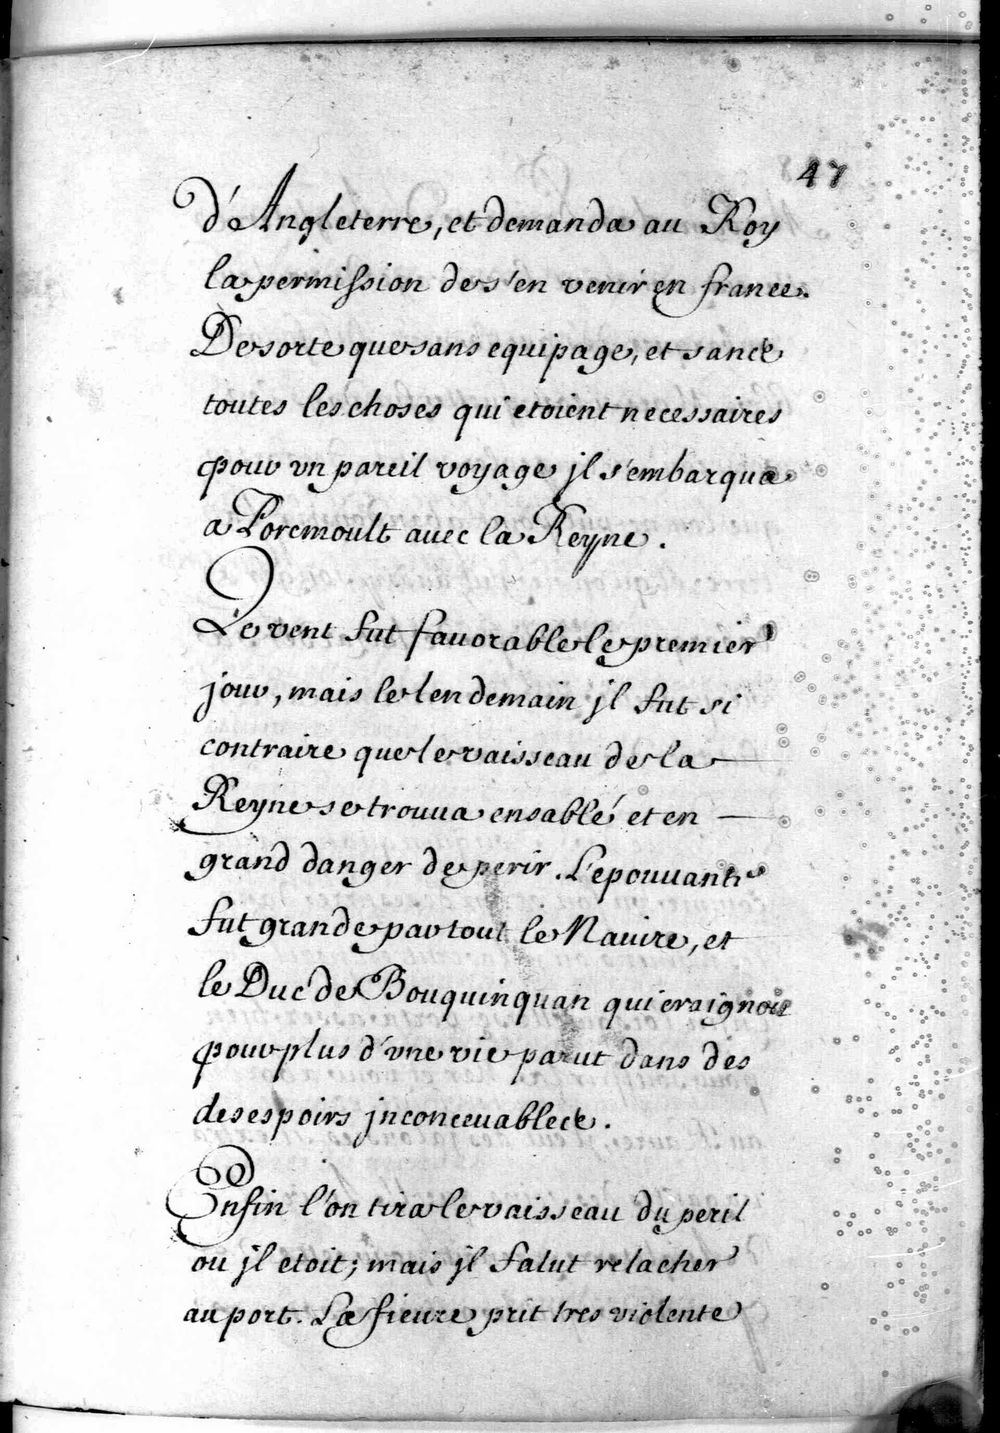 47
d'Angleterre, et demanda au Roy
la permission de s'en venir en france.
De sorte que sans equipage, et sance
toutes les choses qui etoient necessaires
pour vn pareil voyage jl s'embarqua
a Porcmoult avec la Reyne.
Le vent fut favorable le premier
jour, mais le lendemain jl fut si
contraire que le vaisseau de la
Reyne se trouva ensablé et en
grand danger de perir. L'epouvante
fut grande par tout le Navire, et
le Duc de Bouquinquan qui craignoit
pour plus d'vne vie parut dans des
desespoirs jnconcevables.
Enfin l'on tira le vaisseau du peril
ou jl etoit; mais jl falut relacher
au port. La fieure prit tres violente